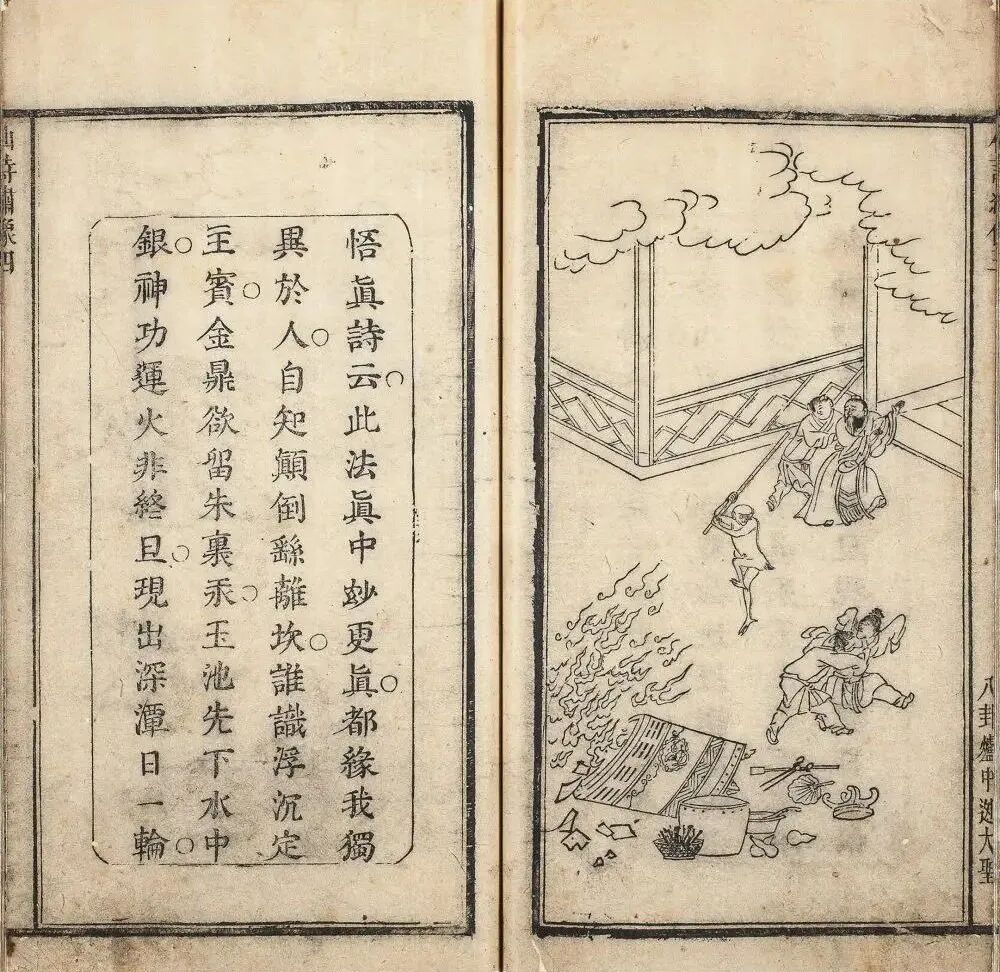 八卦爐中迯大聖
悟眞詩云此法眞中玅更眞都緣我獨
異於人自知顛倒繇離坎誰識浮沉定
主賓金鼎欲留朱裏汞玉池先下水中
銀神功運火非終旦現出深潭日一輪